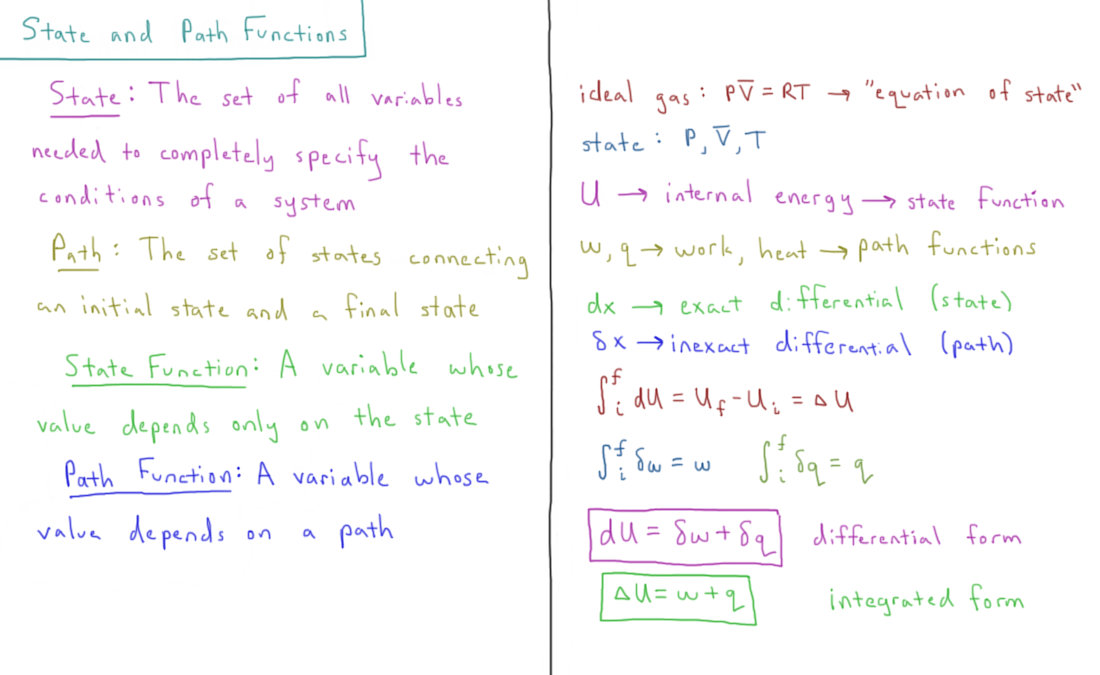 State and Path Functions
State: The set of all variables
needed to completely specify the
conditions of a system
Path: The set of states connecting
an initial state and a final state
State Function: A variable whose
value depends only on the state
Path Function: A variable whose
value depends on a path
ideal gas: PV̅ = RT → "equation of state"
state: P, V̅, T
U → internal energy → state function
w, q → work, heat → path functions
dx → exact differential (state)
δx → inexact differential (path)
∫ᵢᶠ dU = U_f - U_i = ΔU
∫ᵢᶠ δw = w ∫ᵢᶠ δq = q
dU = δw + δq differential form
ΔU = w + q integrated form